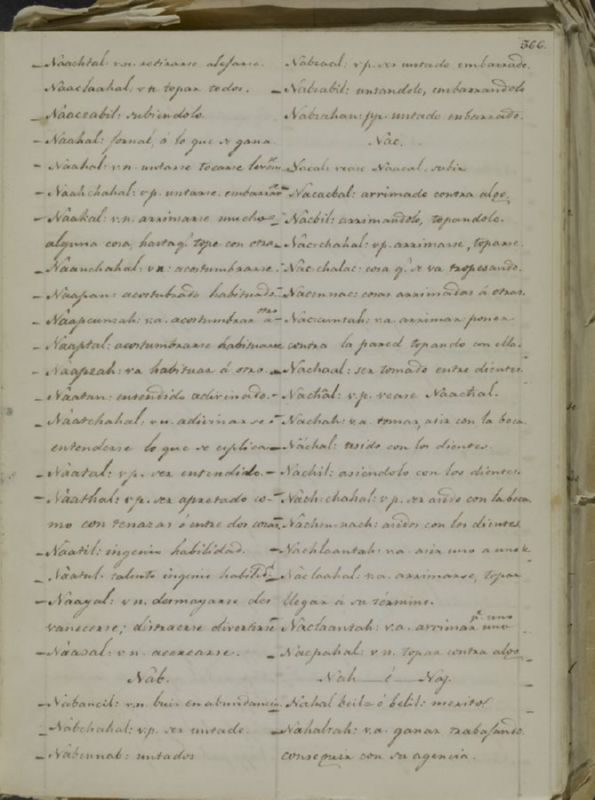 366.
Naachtal: v.n. retirarse alejarse.
Naaclaahal: v.n. topar todos.
Naaczabil: subiendolo.
Naahal: jornal, ó lo que se gana
Naahal: v.n. untarse tocarse
Naahchahal: v.p. untarse embarrar
Naakal: v.n. arrimarse mucho á
alguna cosa, hasta q.e tope con otra
Naanchahal: v.n: acostumbrarse.
Naapan: acostubrado habituado
Naapcunzah: v.a. acostumbrar á otro
Naaptal: acostumbrarse habituarse
Naapzah: va habituar á otro
Naatan: entendido adivinado.
Naatchahal: v.n. adivinar se
entenderse lo que se esplica
Naatal: v.p. ser entendido.
Naathal: v.p. ser apretado co-
mo con tenazas ó entre dos cosas
Naatil: ingenio habilidad.
Naatul: talento ingenio habilid.
Naayal: v.n. desmayarse des
vanecerse; distraerse divertirse
Naazal: v.n. acercarse.
Náb.
Nabancil: v.n. buir en abundancia
Nabchahal: v.p. ser untado.
Nabunnab: untados
Nabzaal: v.p. ser untado embarrado.
Nabzabil: untandolo, embarrandolo
Nabzahan: pp. untado embarrado.
Nac.
Nacal: vease Naacal. subir
Nacacbal: arrimado contra algo.
Nacbil: arrimandolo, topandolo.
Nacchahal: v.p. arrimarse, toparse.
Nacchalac: cosa q.e se va tropesando.
Nacunnac: cosas arrimadas á otras.
Naccunzah: v.a. arrimar poner
contra la pared topando con ella.
Nachaal: ser tomado entre dientes.
Nachal: v.p. vease Naachal.
Nachah: v.a. tomar, asir con la boca
Náchal: asido con los dientes
Nachil: asiendolo con los dientes.
Nachchahal: v.p. ser asido con la boca
Nachunnach: asidos con los dientes
Nachlaantah: v.a. asir uno a uno
Naclaahal: v.a. arrimarse, topar
llegar á su término.
Naclaantah: v.a. arrimar p.r uno uno
Nacpahal: v.n. topar contra algo
Nah é Naj.
Nahal beilz ó beltil: merito.
Nahalzah: v.a. ganar trabajando
conseguir con su agencia.